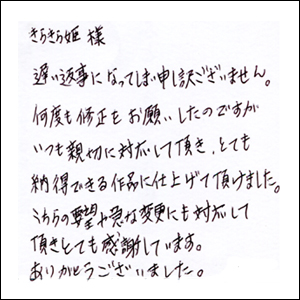 きらきら姫 様
遅い返事になってしまい申し訳ございません。
何度も修正をお願いしたのですが
いつも親切に対応して頂き、とても
納得できる作品に仕上げて頂けました。
こちらの要望や急な変更にも対応して
頂きとても感謝しています。
ありがとうございました。